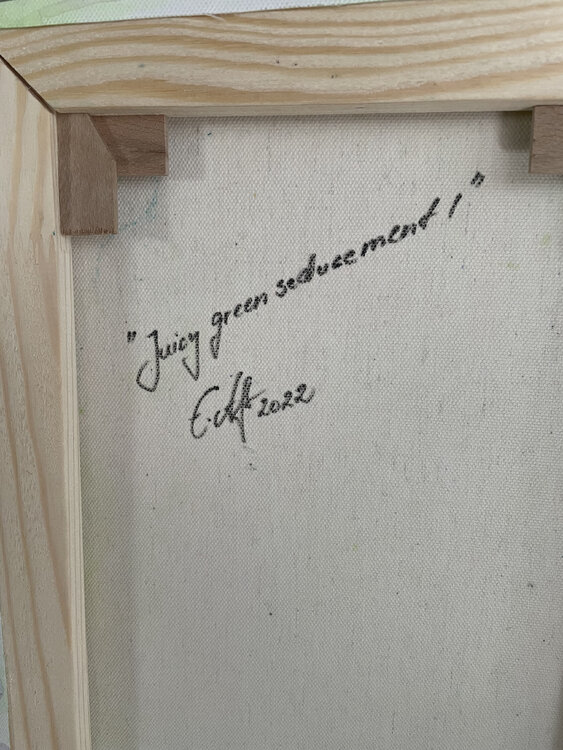 "Juicy green seducement 1"
2022